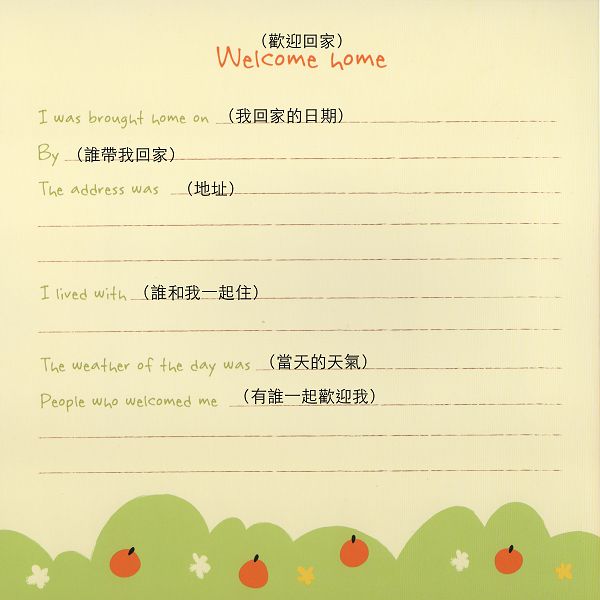 （歡迎回家）
Welcome home
I was brought home on （我回家的日期）
By （誰帶我回家）
The address was （地址）
I lived with （誰和我一起住）
The weather of the day was （當天的天氣）
People who welcomed me （有誰一起歡迎我）